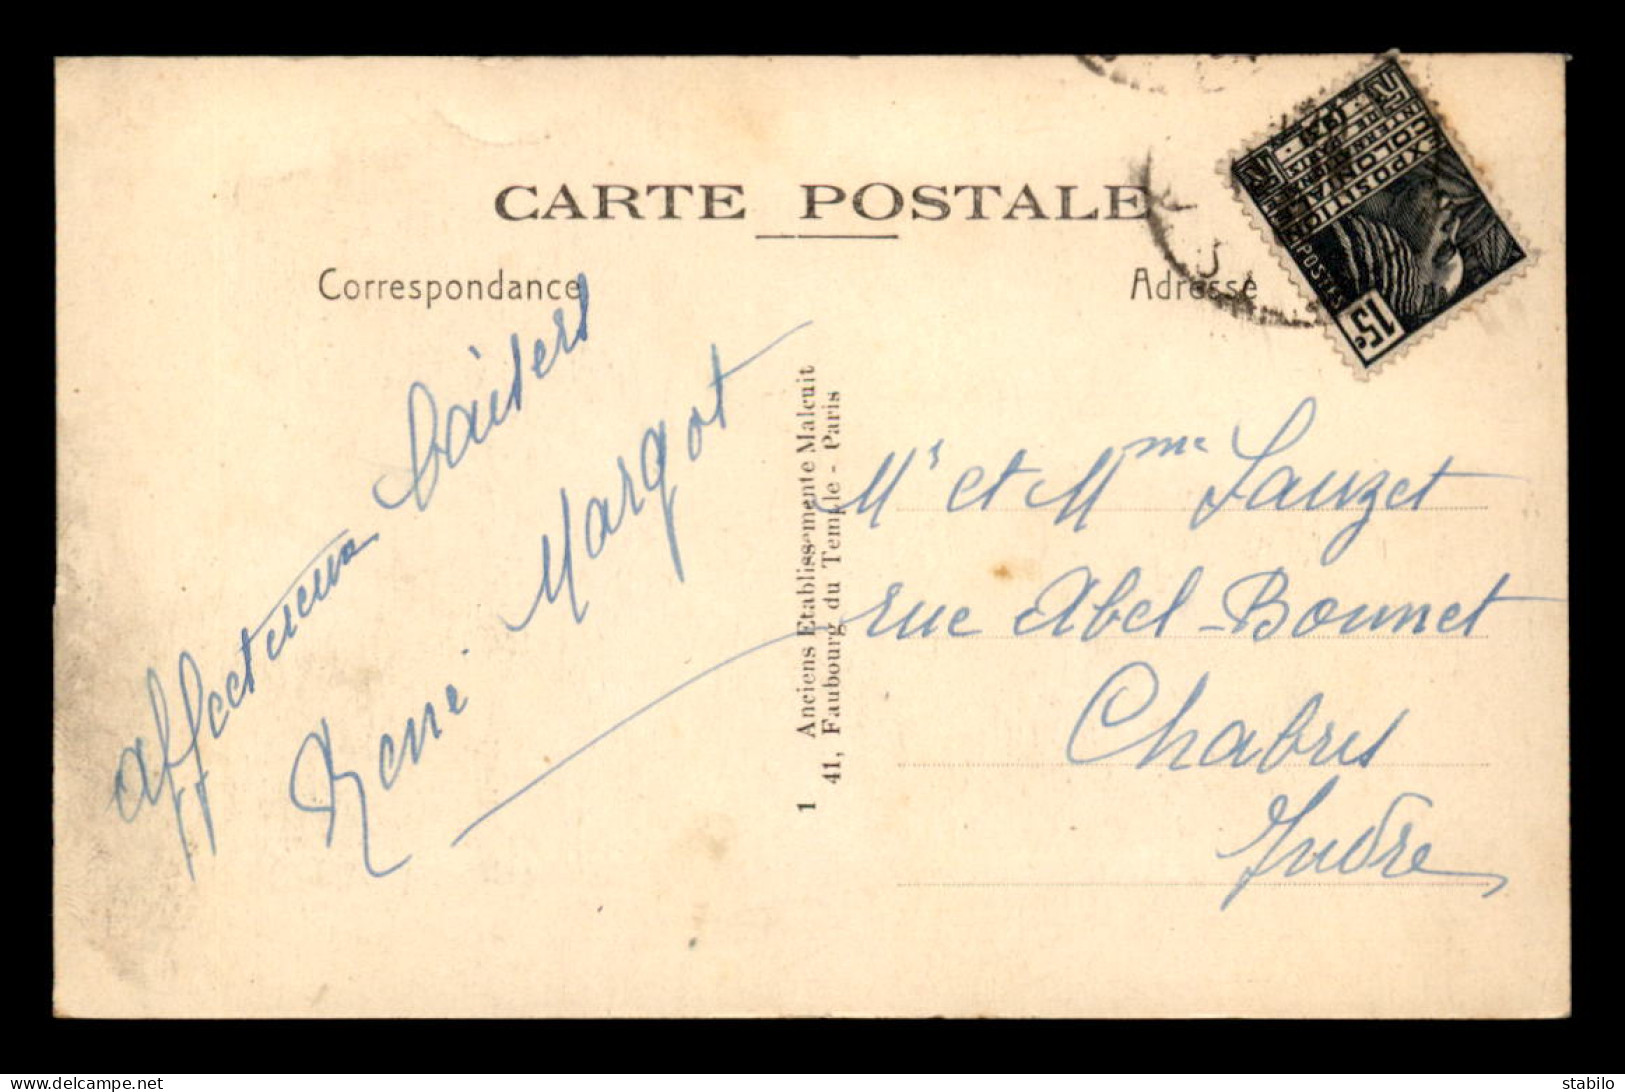 CARTE POSTALE
Correspondance
Adresse
affectueux baisers
René Margot
1 Anciens Etablissemente Malcuit
41, Faubourg du Temple - Paris
Mr et Mme Lauzet
rue Abel-Bonnet
Chabris
Indre
EXPOSITION
COLONIALE
INTERNATIONALE
POSTES
15c
stabilo